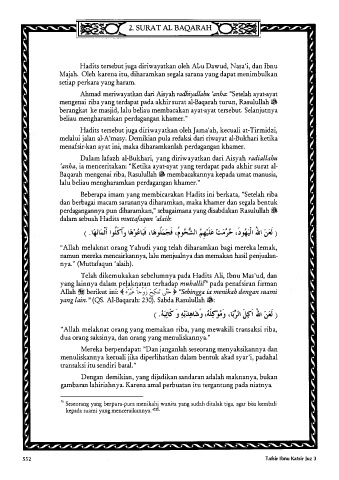 2. SURAT AL BAQARAH
Hadits tersebut juga diriwayatkan oleh Abu Dawud, Nasa'i, dan Ibnu
Majah. Oleh karena itu, diharamkan segala sarana yang dapat menimbulkan
setiap perkara yang haram.
Ahmad meriwayatkan dari Aisyah radhiyallahu 'anha: "Setelah ayat-ayat
mengenai riba yang terdapat pada akhir surat al-Baqarah turun, Rasulullah ﷺ
berangkat ke masjid, lalu beliau membacakan ayat-ayat tersebut. Selanjutnya
beliau mengharamkan perdagangan khamer."
Hadits tersebut juga diriwayatkan oleh Jama'ah, kecuali at-Tirmidzi,
melalui jalan al-A'masy. Demikian pula redaksi dari riwayat al-Bukhari ketika
menafsirkan ayat ini, maka diharamkanlah perdagangan khamer.
Dalam lafazh al-Bukhari, yang diriwayatkan dari Aisyah radiallahu
'anha, ia menceritakan: "Ketika ayat-ayat yang terdapat pada akhir surat al-
Baqarah mengenai riba, Rasulullah ﷺ membacakannya kepada umat manusia,
lalu beliau mengharamkan perdagangan khamer."
Beberapa imam yang membicarakan Hadits ini berkata, "Setelah riba
dan berbagai macam sarananya diharamkan, maka khamer dan segala bentuk
perdagangannya pun diharamkan," sebagaimana yang disabdakan Rasulullah ﷺ
dalam sebuah Hadits muttafaqun 'alaih:
( لَعَنَ اللهُ الْيَهُودَ، حُرِّمَتْ عَلَيْهِمُ الشُّحُومُ، فَجَمَلُوهَا، فَبَاعُوهَا وَأَكَلُوا أَثْمَانَهَا. )
"Allah melaknat orang Yahudi yang telah diharamkan bagi mereka lemak,
namun mereka mencairkannya, lalu menjualnya dan memakan hasil penjualan-
nya." (Muttafaqun 'alaih).
Telah dikemukakan sebelumnya pada Hadits Ali, Ibnu Mas'ud, dan
yang lainnya dalam pelaknatan terhadap muhallil⁷¹ pada penafsiran firman
Allah ﷻ berikut ini: ﴿ حَتَّى تَنكِحَ زَوْجًا غَيْرَهُ ﴾ "Sehingga ia menikah dengan suami
yang lain." (QS. Al-Baqarah: 230). Sabda Rasulullah ﷺ:
( لَعَنَ اللهُ آكِلَ الرِّبَا، وَمُوكِلَهُ، وَشَاهِدَيْهِ وَ كَاتِبَهُ. )
"Allah melaknat orang yang memakan riba, yang mewakili transaksi riba,
dua orang saksinya, dan orang yang menuliskannya."
Mereka berpendapat: "Dan janganlah seseorang menyaksikannya dan
menuliskannya kecuali jika diperlihatkan dalam bentuk akad syar'i, padahal
transaksi itu sendiri batal."
Dengan demikian, yang dijadikan sandaran adalah maknanya, bukan
gambaran lahiriahnya. Karena amal perbuatan itu tergantung pada niatnya.
Seseorang yang berpura-pura menikahi wanita yang sudah ditalak tiga, agar bisa kembali
kepada suami yang menceraikannya.
552
Tafsir Ibnu Katsir Juz 3